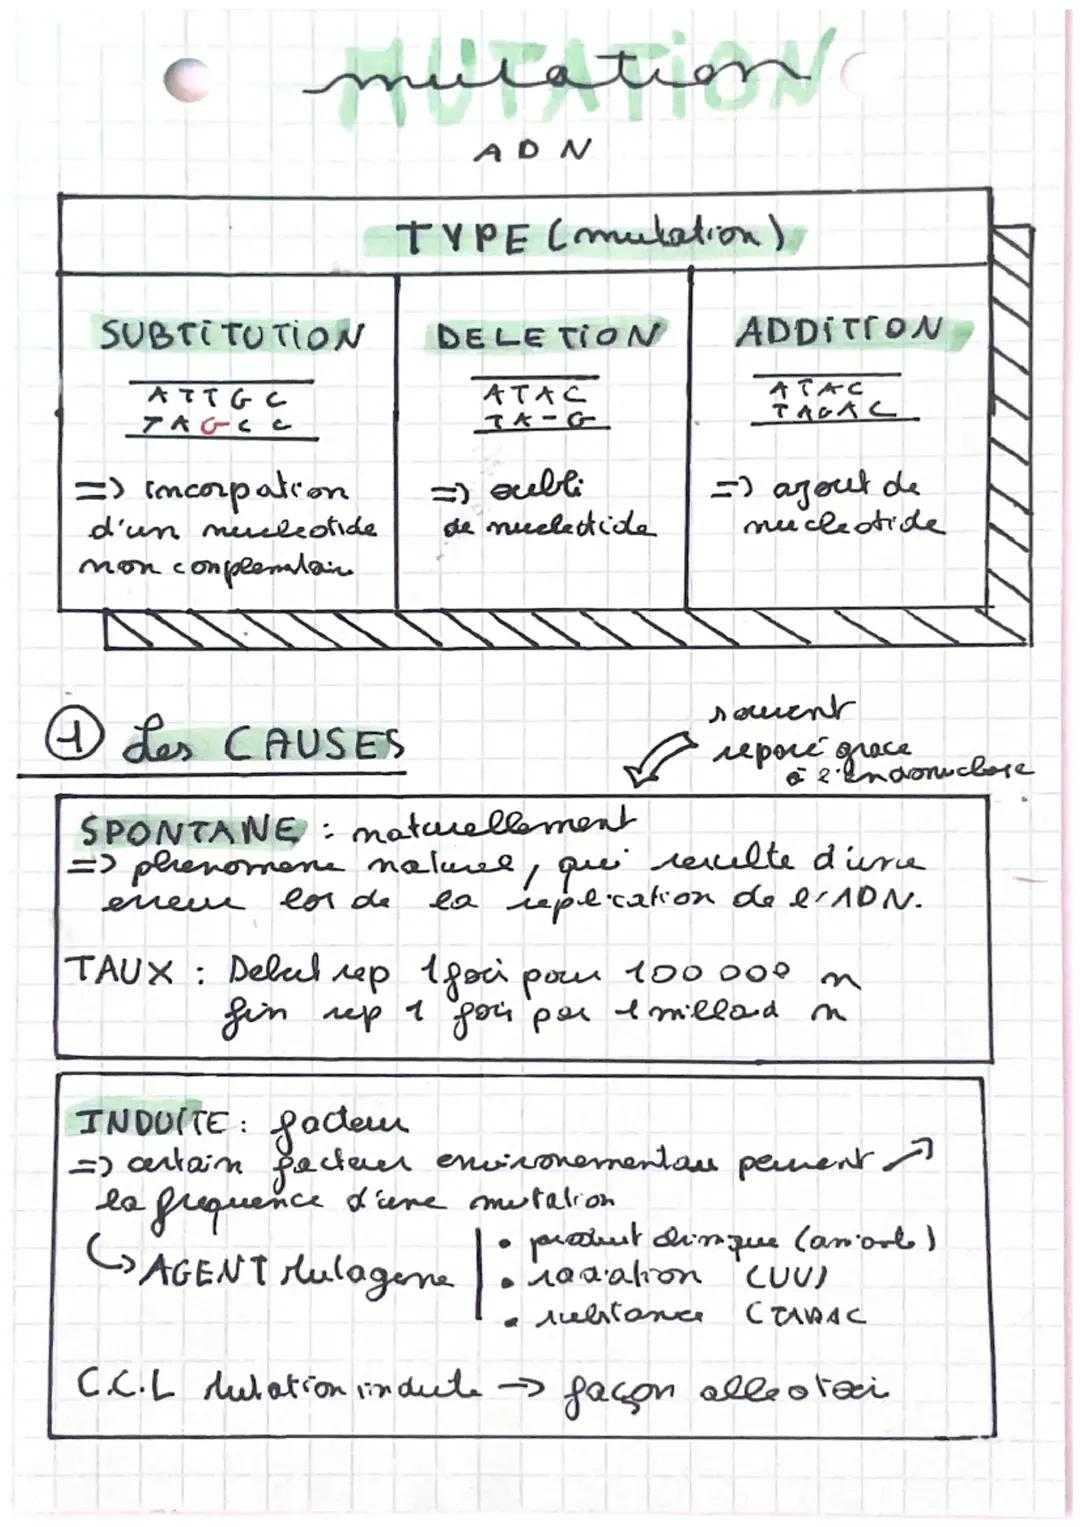 MUTATiON
mutation
ADN
TYPE (mutation)
SUBTiTUTiON
ATTGC
TAGCC
=> incorpation
d'un nucleotide
non complementair
DELETiON
ATAC
TA-G
=> oubli
de nucleotide
ADDiTiON
ATAC
TAGAC
=> ajout de
nucleotide
1 Les CAUSES
souvent
reparé grace
à l'endonuclease
SPONTANE : naturellement
=> phenomene naturel, qui resulte d'une
erreur lor de la replication de l'ADN.
TAUX : Debut rep 1 foci pour 100 000 n
fin rep 1 fois par 1 milliard n
INDUiTE : facteur
=> certain facteur environementau peuvent ↗
la frequence d'une mutation
↳ AGENT Mutagene
• produit chimique (amiante)
• radiation (UV)
• substance (TABAC
C.C.L Mutation induite → façon alleotoir